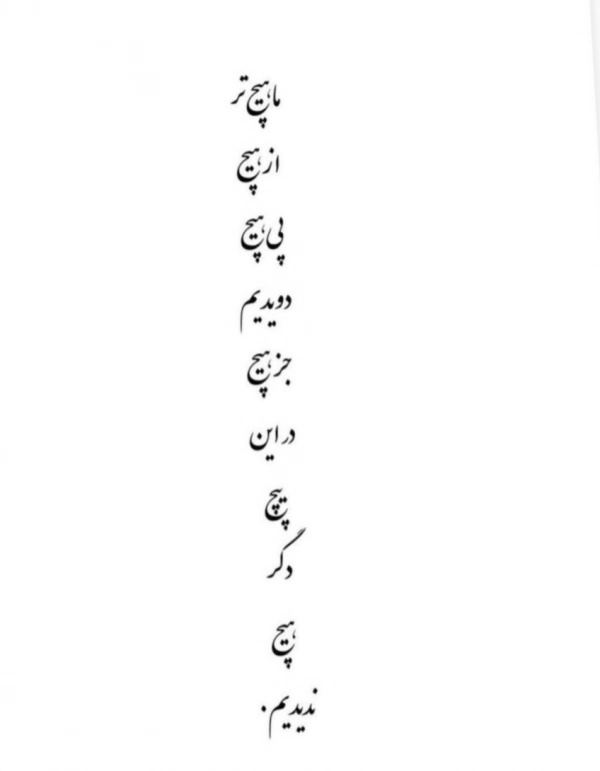 ما هیچ تر
از هیچ
پی هیچ
دویدیم
جز هیچ
در این
پیچ
دگر
هیچ
ندیدیم.